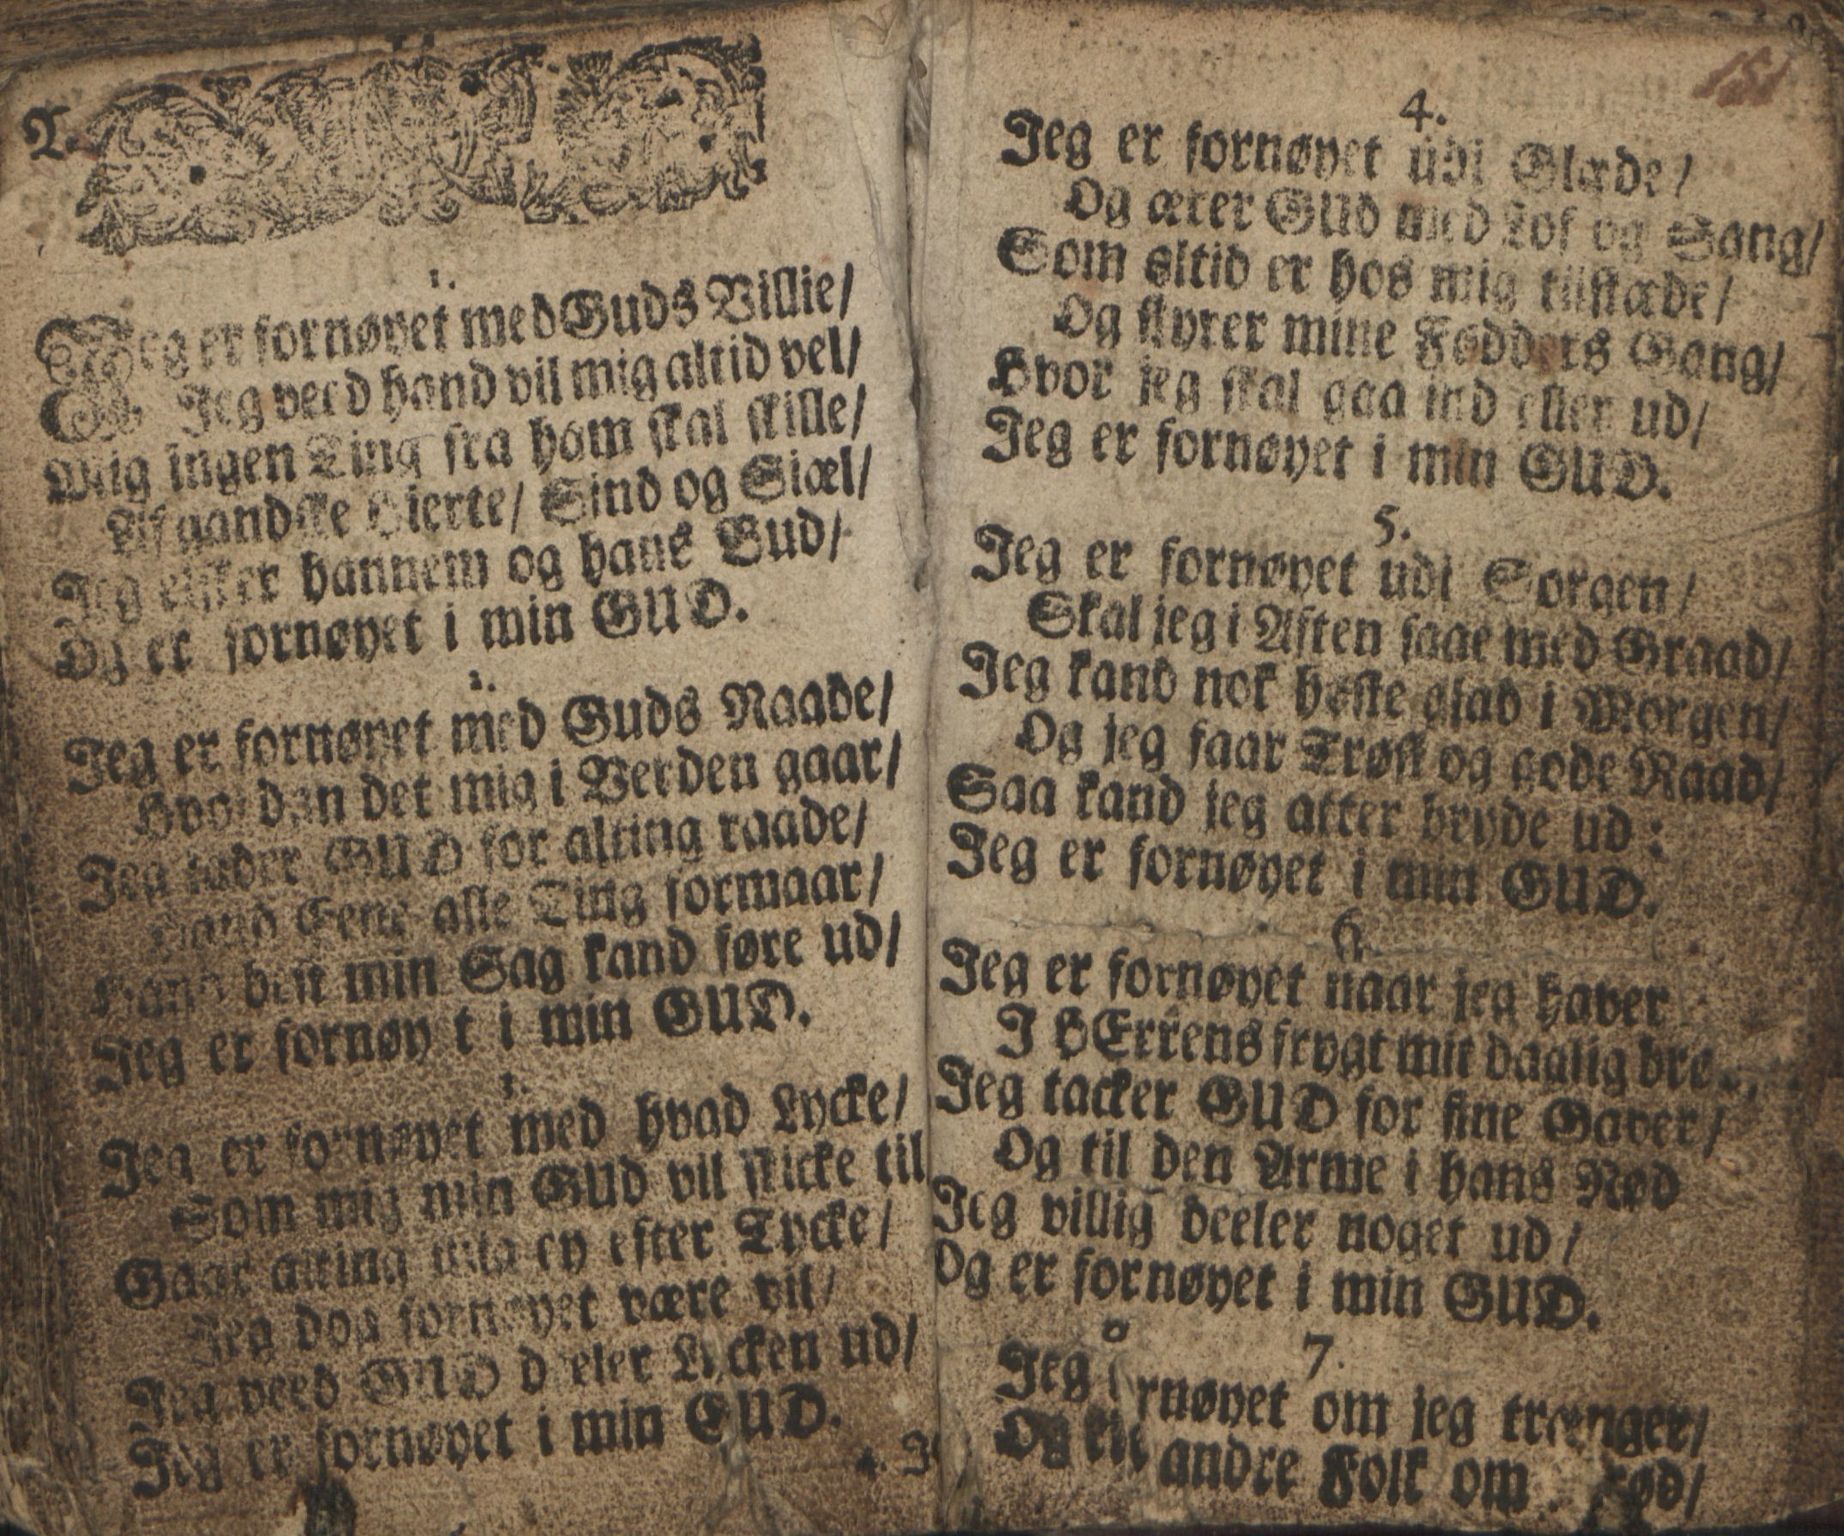 T.
1.
Jeg er fornøyet med Guds Villie/
Jeg veed hand vil mig altid vel/
Mig ingen Ting fra ham skal skille/
Af gandske Hierte/ Sind og Siæl/
Jeg elsker hannem og hans Bud/
Og er fornøyet i min GUD.
2.
Jeg er fornøyet med Guds Raade/
Hvordan det mig i Verden gaar/
Jeg lader GUD for alting raade/
Hand Eene alle Ting formaar/
Hand best min Sag kand føre ud/
Jeg er fornøyet i min GUD.
Jeg er fornøyet med hvad Lycke/
Som mig min GUd vil skicke til
Gaar alting mig ey efter Tycke/
Jeg dog fornøyet være vil/
Jeg veed GUD deeler Lycken ud/
Jeg er fornøyet i min GUD.
4. J
151
4.
Jeg er fornøyet udi Glæde/
Og ærer GUd med Lof og Sang/
Som altid er hos mig tilstæde/
Og styrer mine Fødders Gang/
Hvor jeg skal gaa ind eller ud/
Jeg er fornøyet i min GUD.
5.
Jeg er fornøyet udi Sorgen/
Skal jeg i Aften saae med Graad/
Jeg kand nok høste glad i Morgen/
Og jeg faar Trøst og gode Raad/
Saa kand jeg atter bryde ud:
Jeg er fornøyet i min GUD.
6.
Jeg er fornøyet naar jeg haver
I HErrens frygt mit daglig
Jeg tacker GUD for sine Gaver/
Og til den Arme i hans Nød
Jeg villig deeler noget ud/
Og er fornøyet i min GUD.
7.
Jeg rnøyet om jeg trænger/
Og andre Folk om